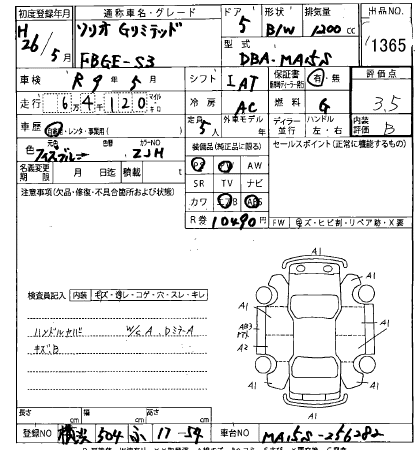 初度登録年月 通称車名・グレード ドア 形状 排気量 出品NO.
H26年5月 ソリオ Gリミテッド 5 B/W 1200cc
型式 1365
FBGE-S3 DBA-MA15S
車検 R9年5月 シフト IAT 保証書 有・無 評価点
走行 6万4千120 マイル キロ 冷房 AC 燃料 G 3.5
車歴 自家用・レンタ・事業用( ) 定員 5人 外車モデル ディーラー 並行 ハンドル 左・右 内装評価 B
色 元色 色替 カラーNO ZJH 装備品(純正品に限る) セールスポイント(正常に機能するもの)
名義変更期限 月 日迄 積載 t PS PW AW
注意事項(欠品・修復・不具合箇所および状態) SR TV ナビ
カワ エアB ABS
R券 10490円 FW キズ・ヒビ割・リペア跡・X要
A1
A1
A1
A1
検査員記入 内装 キズ・汚レ・コゲ・穴・スレ・キレ
ハンドルヤバ W/S A. DミラーA
キズB
AB3
A2
A1
A1
A1
長さ cm 幅 cm 高さ cm
登録NO 横浜 504 ふ 17-54 車台NO MA15S-256282